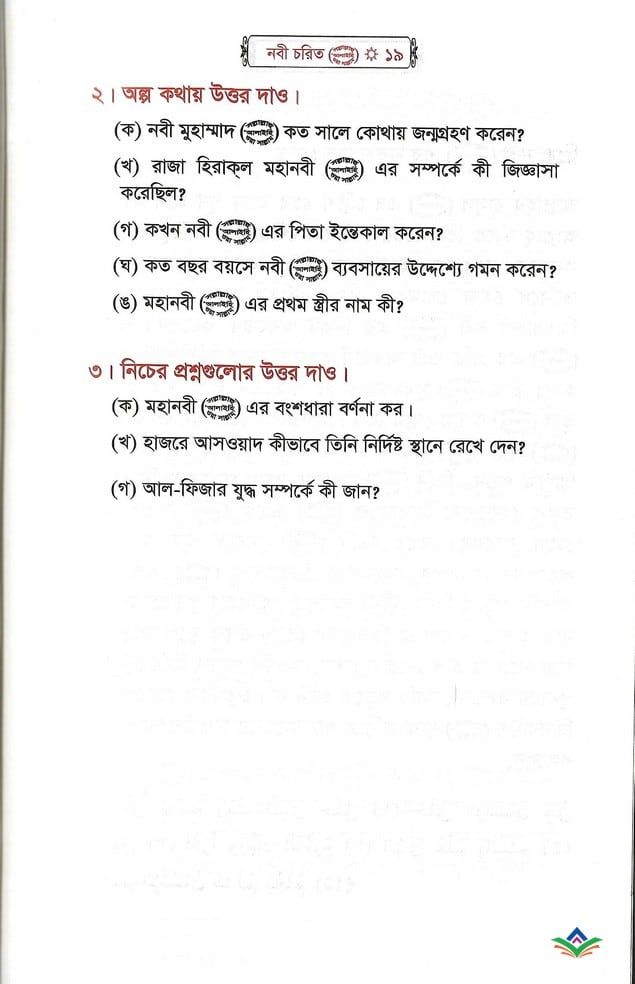 নবী চরিত (সাল্লাল্লাহু আলাইহি ওয়া সাল্লাম) ☼ ১৯
২। অল্প কথায় উত্তর দাও।
(ক) নবী মুহাম্মাদ (সাল্লাল্লাহু আলাইহি ওয়া সাল্লাম) কত সালে কোথায় জন্মগ্রহণ করেন?
(খ) রাজা হিরাক্ল মহানবী (সাল্লাল্লাহু আলাইহি ওয়া সাল্লাম) এর সম্পর্কে কী জিজ্ঞাসা
করেছিল?
(গ) কখন নবী (সাল্লাল্লাহু আলাইহি ওয়া সাল্লাম) এর পিতা ইন্তেকাল করেন?
(ঘ) কত বছর বয়সে নবী (সাল্লাল্লাহু আলাইহি ওয়া সাল্লাম) ব্যবসায়ের উদ্দেশ্যে গমন করেন?
(ঙ) মহানবী (সাল্লাল্লাহু আলাইহি ওয়া সাল্লাম) এর প্রথম স্ত্রীর নাম কী?
৩। নিচের প্রশ্নগুলোর উত্তর দাও।
(ক) মহানবী (সাল্লাল্লাহু আলাইহি ওয়া সাল্লাম) এর বংশধারা বর্ণনা কর।
(খ) হাজরে আসওয়াদ কীভাবে তিনি নির্দিষ্ট স্থানে রেখে দেন?
(গ) আল-ফিজার যুদ্ধ সম্পর্কে কী জান?